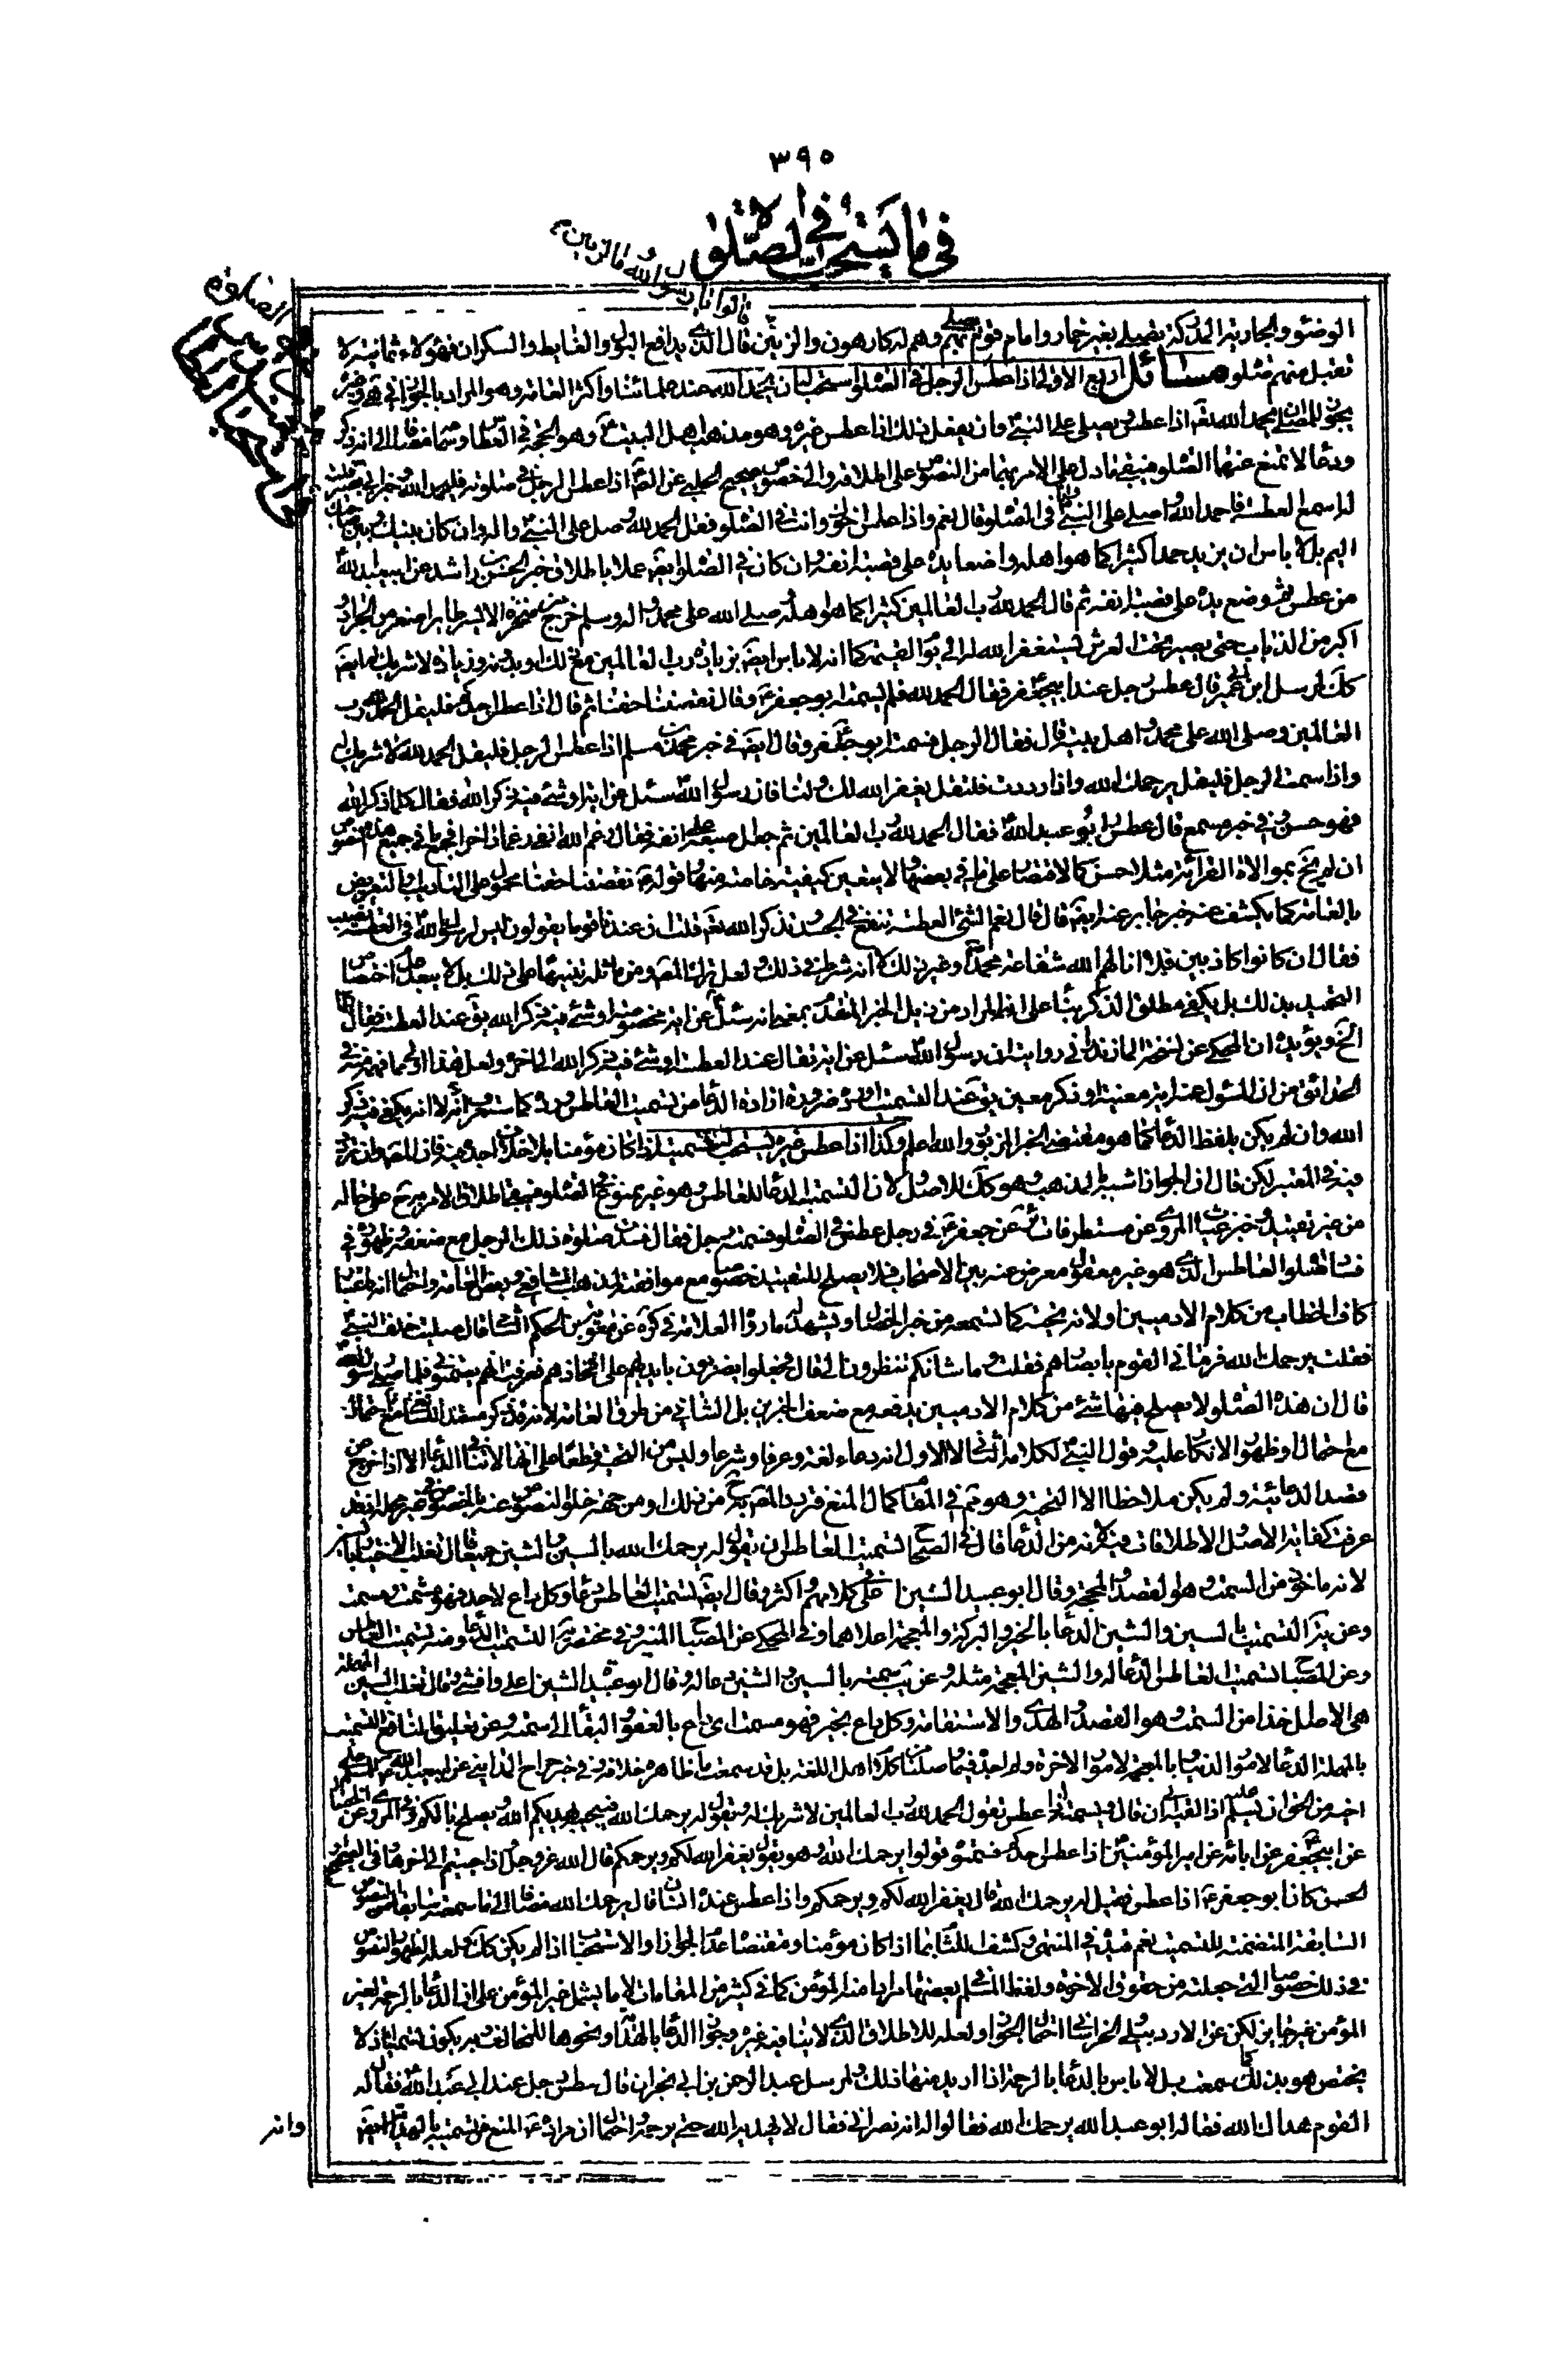 ٣٩٥
في ما يستحب في الصلاة
قالوا يا رسول الله ما الزبين
الوضوء والجارية المدركة تصلي بغير خمار وامام قوم يصلي بهم وهم له كارهون والزبين قال الذي يدافع البول والغايط والسكران فهؤلاء ثمانية لا
تقبل منهم صلوة مسائل اربع الاولى اذا عطس الرجل في الصلوة استحب له ان يحمد الله عند علمائنا واكثر العامة وهو المراد بالجواز في
يجوز للمصلي ان يحمد الله تعالى اذا عطس ويصلي على النبي وان يفعل ذلك اذا عطس غيره وهو مذهب اهل البيت وهو الحجة في
ودعاء لا تمنع عنهما الصلوة فيبقى ما دل على الامر بهما من النصوص على اطلاقه والخصوص صحيح الحلبي عن الصم اذا عطس الرجل في صلوته فليحمد الله
له اسمع العطسة فاحمد الله واصلي على النبي وانا في الصلوة قال نعم واذا عطس اخوك وانت في الصلوة فقل الحمد لله وصل على النبي واله وان كان بينك وبين
اليم بل لا باس ان يزيد حمدا كثيرا كما هو اهله واضعا يده على قصبة انفه وان كان في الصلوة ايضا عملا باطلاق خبر الحسن بن راشد عن ابي عبد الله
من عطس ثم وضع يده على قصبة انفه ثم قال الحمد لله رب العالمين كثيرا كما هو اهله وصلى الله على محمد واله وسلم خرج من منخره الايسر طاير اصغر من الجراد و
اكبر من الذباب حتى يصير تحت العرش يستغفر الله له الى يوم القيمة كما انه لا باس ايضا بزيادة رب العالمين مع ذلك او بدونه وزيادة لا شريك له ايضا
كك لمرسل ابن ابي عمير قال عطس رجل عند ابي جعفر فقال الحمد لله فلم يسمته ابو جعفر وقال نقصنا حقنا ثم قال اذا عطس احدكم فليقل الحمد لله رب
العالمين وصلى الله على محمد واهل بيته قال فقال الرجل فسمته ابو جعفر وقال ايضا في خبر محمد بن مسلم اذا عطس الرجل فليقل الحمد لله لا شريك له
واذا سمت الرجل فليقل يرحمك الله واذا رددت فلتقل يغفر الله لك ولنا فان رسول الله سئل عن اية او شيء فيه ذكر الله فقال كلما ذكر الله
فهو حسن وفي خبر مسمع قال عطس ابو عبد الله فقال الحمد لله رب العالمين ثم جعل اصبعه على انفه فقال رغم انفي لله رغما داخرا
ان لم يخ بموالاة القرائة مثلا حسن كالاقتصار على ما في بعضها ولا يتعين كيفية خاصة منها وقوله نقصنا حقنا محمول على التاديب او التعريض
بالعامة كما يكشف عنه خبر جابر عنه ايضا قال قال نعم الشيء العطسة تنفع في الجسد وتذكر الله تعالى قلت ان عندنا قوما يقولون ليس لرسول الله في العطسة نصيب
فقال ان كانوا كاذبين فلا انالهم الله شفاعة محمد وغير ذلك لا انه شرط في ذلك ولعل ترك المصنف ومن ماثله تنبيها على ذلك بل لا يبعد اختصاص
التحميد بذلك بل يكفي مطلق الذكر بناء على ان المراد من ذيل الخبر المتقدم بمعنى انه سئل عن اية مخصوصة او شيء فيه ذكر الله يق عند العطسة فقال
الخ ويؤيده ان المحكي عن نسخة المازندراني رواية ان رسول الله سئل عن اية تقال عند العطسة او شيء فيه ذكر الله الى اخره ولعل هذا اولى مما فهمه في
الحدائق من ان المسؤل عنه اية معينة وذكر معين يق عند التسميت او رده ضرورة ارادة الدعاء من تسميت العاطس ورده كما ستعرف لا انه يكفي فيه ذكر
الله وان لم يكن بلفظ الدعاء كما هو مقتضى الخبر المزبور والله اعلم وكذا اذا عطس غيره يستحب له تسميته اذا كان مؤمنا بلا خلاف اجده فيه فان المصنف وان تردد
فيه في المعتبر لكن قال ان الجواز اشبه بالمذهب وهو كك للاصل ولان التسميت الدعاء للعاطس وهو غير ممنوع في الصلوة فيبقى اطلاق الامر به ح على حاله
من غير تقييد وخبر غياث المروي عن مستطرفات عن جعفر في رجل عطس في الصلوة فسمته رجل فقال فسدت صلوة ذلك الرجل مع ضعفه وظهوره في
فساد صلوة العاطس الذي هو غير معقول معرض عنه بين الاصحاب فلا يصلح للتقييد خصوصا مع موافقته لمذهب الشافعي وبعض العامة واحتمال انه باعتبار
كاف الخطاب من كلام الادميين او لانه تحية كما تسمعه من خبر الخصال ويشهد له ما رواه العلامة في كره عن معوية بن الحكم السلمي قال صليت خلف النبي
فقلت يرحمك الله فرماني القوم بابصارهم فقلت وما شانكم تنظرون الي قال فجعلوا يضربون بايديهم على افخاذهم فعرفت انهم يصمتوني فلما صلى رسول الله
قال ان هذه الصلوة لا يصلح فيها شيء من كلام الادميين يدفعه مع ضعف الخبرين بل الثاني من طرق العامة لانه ذكره مستندا للشافعي
مع احتمال او ظهور الانكار عليه في قول النبي لكلامه الثاني لا الاول انه دعاء لغة وعرفا وشرعا وليس من التحية قطعا على انها لا تنافي الدعاء الا اذا خرج عن
قصد الدعائية ولم يكن ملاحظا الا التحية وهو تم في المقام كمال المنع فتردد المصنف ح من ذلك ومن جهة خلو النصوص عنه بالخصوص في غير محله اذ قد
عرفت كفاية الاصل والاطلاقات فيه لانه من الدعاء قال في الصحاح تسميت العاطس ان يقول له يرحمك الله بالسين والشين جميعا قال ثعلب الاختيار بالسين
لانه ماخوذ من السمت وهو القصد والمحجة وقال ابو عبيد الشين اعلى في كلامهم واكثر وقال ايضا تسميت العاطس دعاء وكل داع لاحد فهو مشمت ومسمت
وعن يه التسميت بالسين والشين الدعاء بالخير والبركة والمعجمة اعلاهما وفي المحكي عن المصباح المنير وفي مختصر يه التسميت الدعاء ومنه تسميت العاطس
وعن المصباح تسميت العاطس الدعاء له والشين المعجمة مثله وعن يب سمته بالسين والشين دعا له وقال ابو عبيد الشين اعلى وافشى وقال ثعلب السين المهملة
هي الاصل اخذا من السمت وهو القصد والهدى والاستقامة وكل داع بخير فهو مسمت اي داع بالعود والبقاء الى سمته وعن تعليق النافع التسميت
بالمهملة الدعاء لامور الدنيا وبالمعجمة لامور الاخرة ولم اجده فيما وصلنا من كلام اهل اللغة بل قد سمعت ما ظاهره خلافه وفي خبر جراح المدايني عن ابي عبد الله للمسلم على
اخيه من الحق ان يسلم عليه اذا لقيه الى ان قال ويسمته اذا عطس يقول الحمد لله رب العالمين لا شريك له ويقول له يرحمك الله فيجيب يهديكم الله ويصلح بالكم وفي المروي عن الخصال
عن ابي جعفر عن ابائه عن امير المؤمنين اذا عطس احدكم فسمتوه قولوا يرحمك الله وهو يقول يغفر الله لكم ويرحمكم قال الله عز وجل واذا حييتم الى اخرها وفي الصحيح او
الحسن كان ابو جعفر اذا عطس فقيل له يرحمك الله قال يغفر الله لكم ويرحمكم واذا عطس عنده انسان قال يرحمك الله مضافا الى ما سمعته سابقا من النصوص
السابقة المتضمنة للتسميت نعم قيده في المنتهى وكشف اللثام بما اذا كان مؤمنا ومقتضاه عدم الجواز او الاستحباب اذا لم يكن كك ولعله لظهور النصوص
في ذلك خصوصا التي جعلته من حقوق الاخوة ولفظ المسلم في بعضها مراد به منه المؤمن كما في كثير من المقامات لا ما يشمل غير المؤمن على ان الدعاء بالرحمة لغير
المؤمن غير جايز لكن عن الاردبيلي والخراساني احتمال الجواز ولعله للاطلاق الذي لا ينافيه غيره وجواز الدعاء بالهداية ونحوها للمخالف وبه يكون تسميتا اذ لا
يختص هو بذلك كما سمعت بل لا باس بالدعاء بالرحمة اذا اريد منها ذلك ولمرسل عبد الرحمن بن ابي نجران قال عطس رجل عند ابي عبد الله فقال له
القوم هداك الله فقال ابو عبد الله يرحمك الله فقالوا له انه نصراني فقال لا يهديه الله حتى يرحمه
وانه